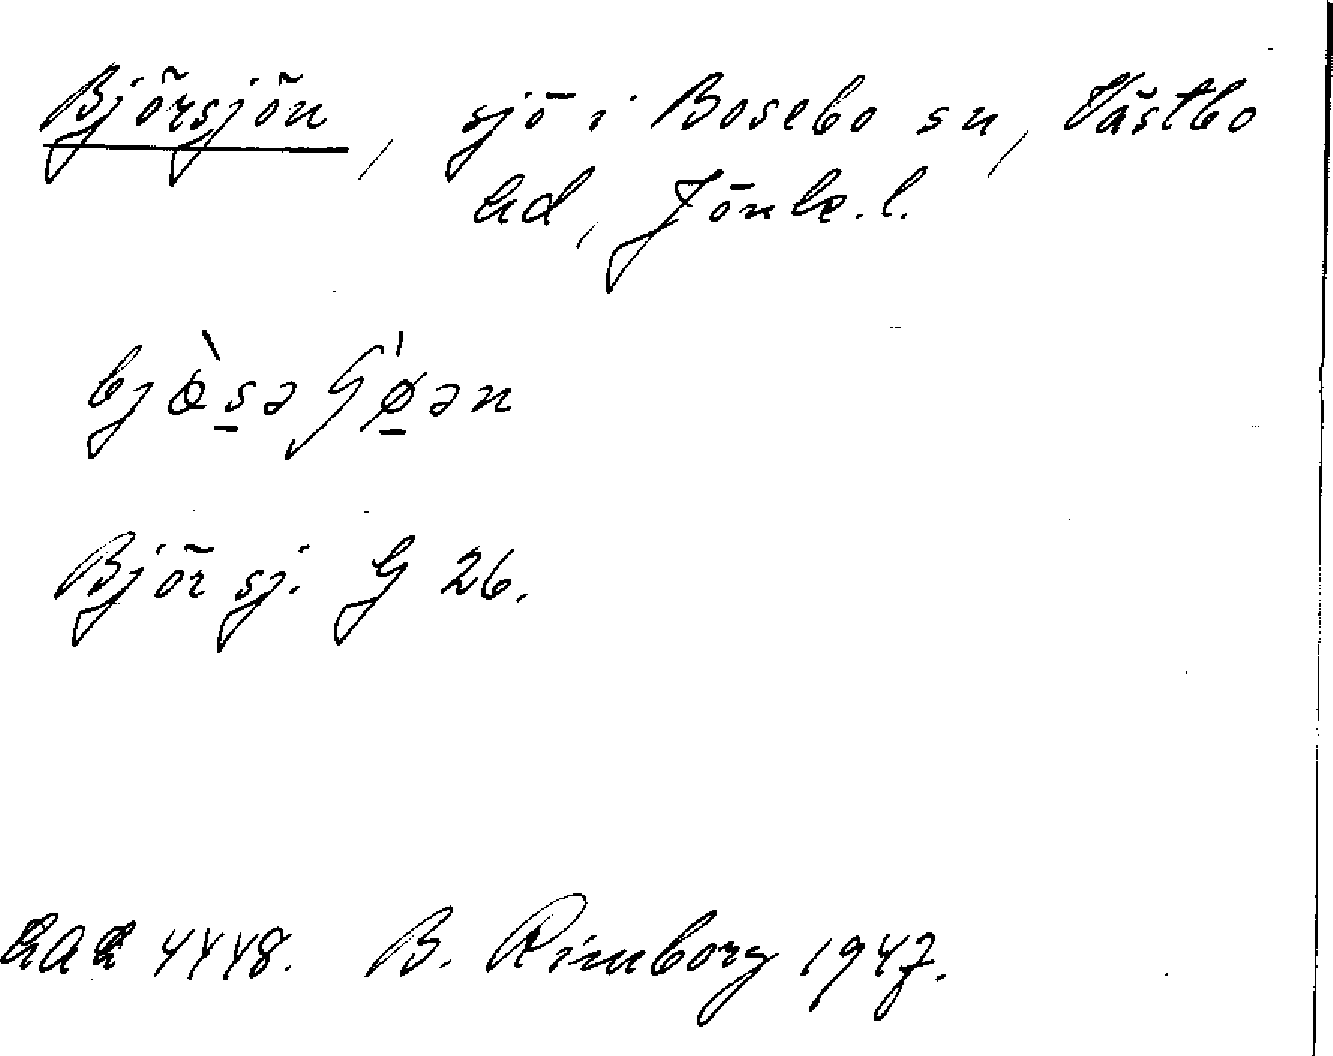 Björsjön, sjö i Bosebo sn, Västbo
hd, Jönk. l.
Björsj. G 26.
LAL 4448. B. Rimborg 1947.